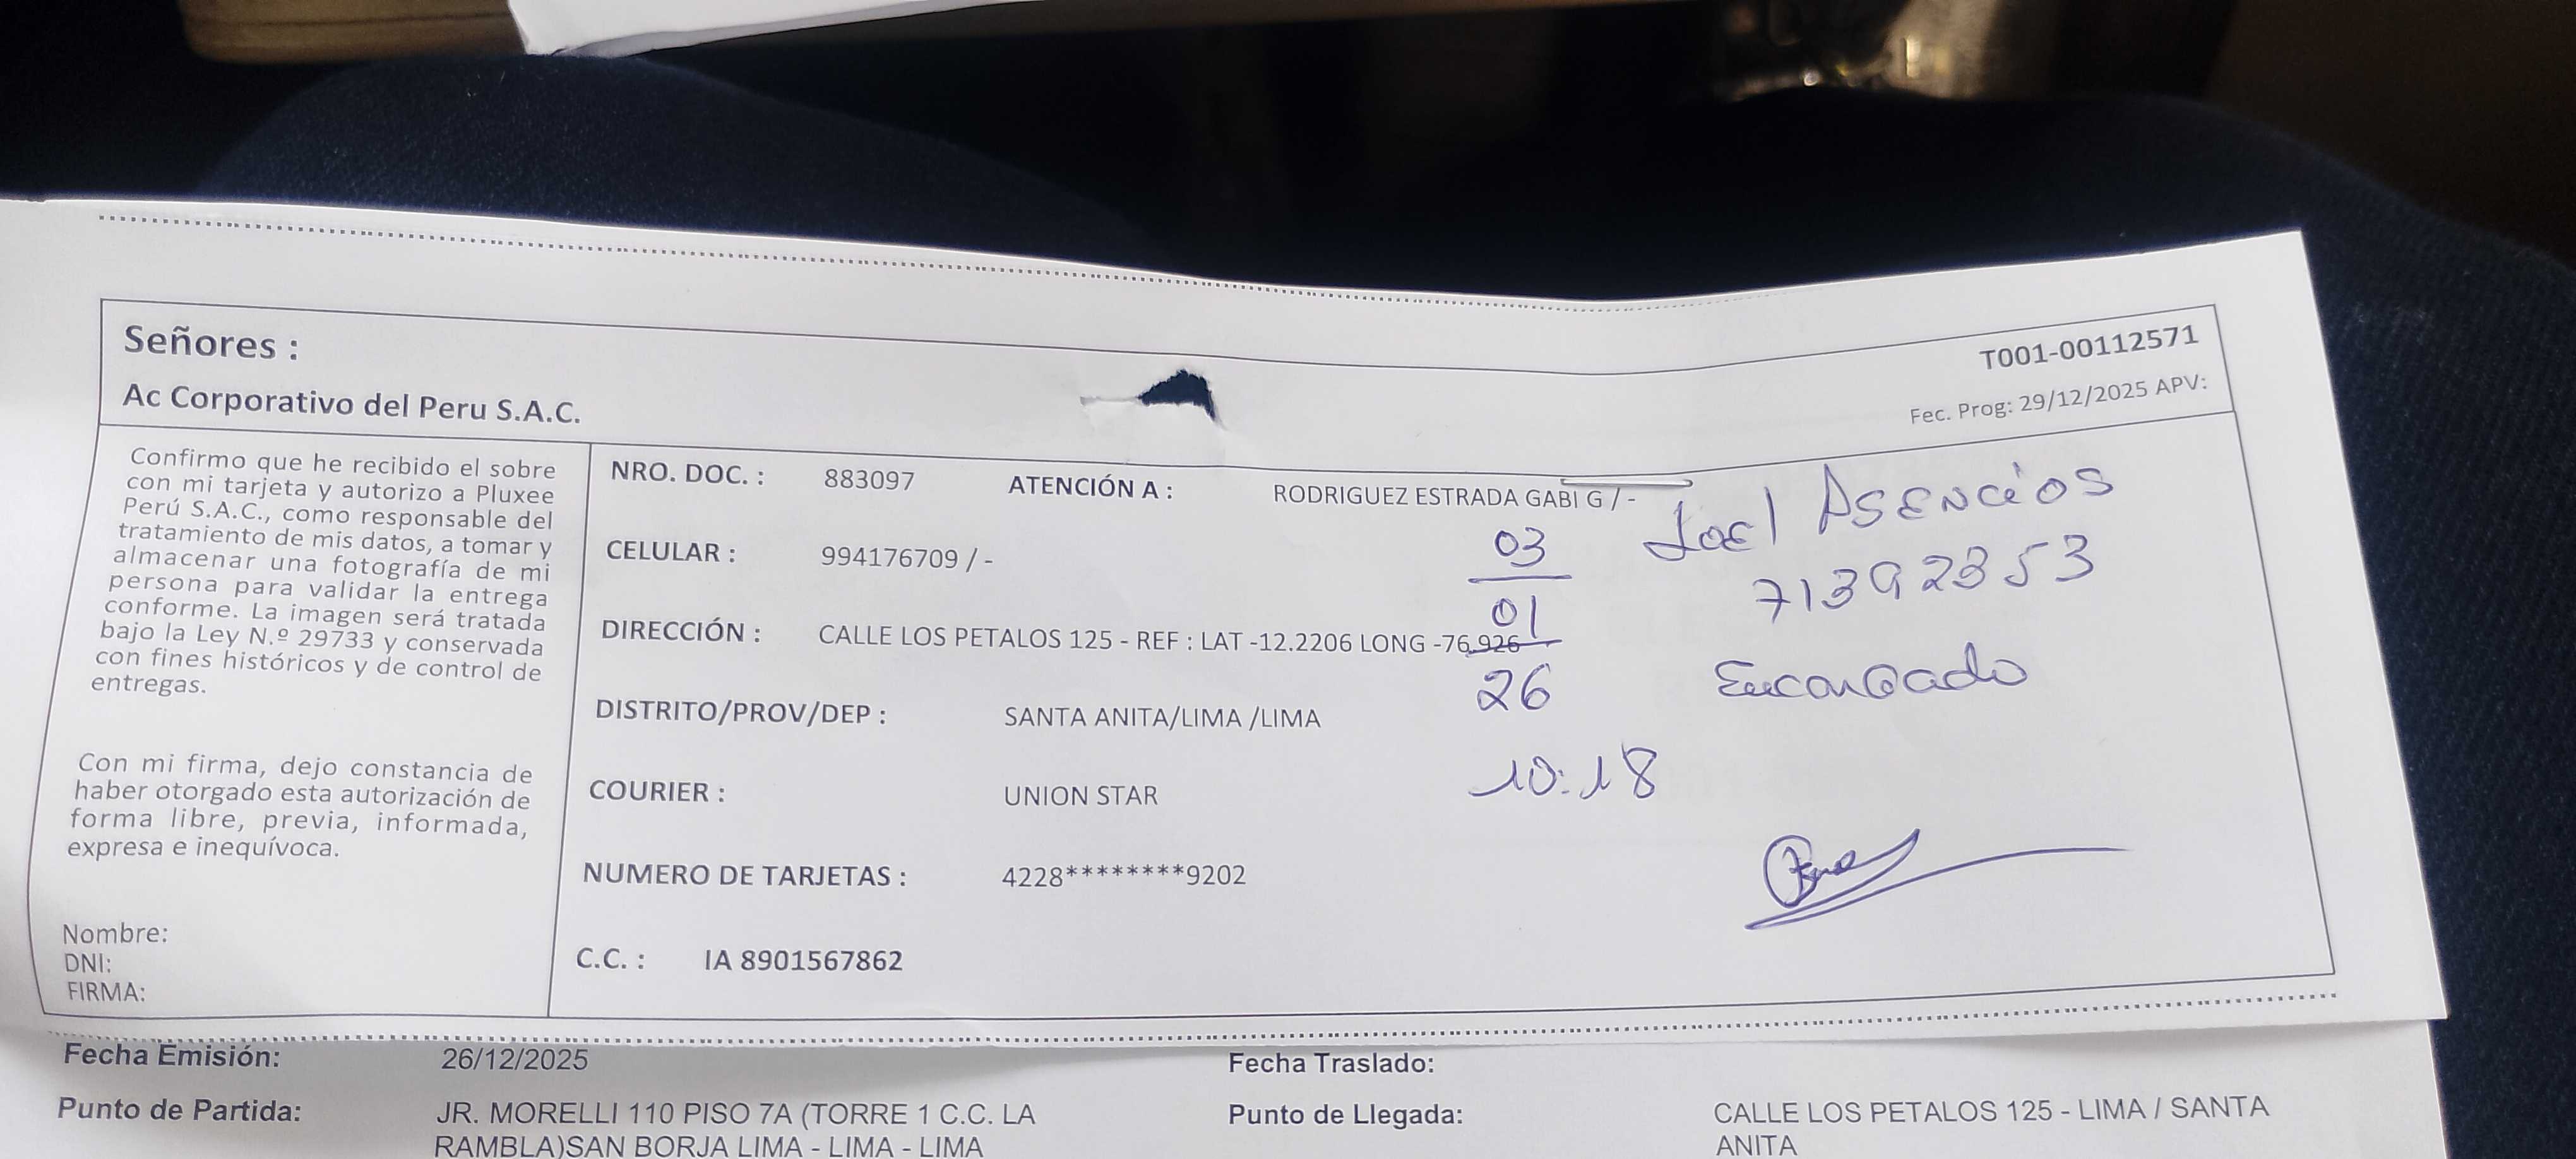 Señores :
Ac Corporativo del Peru S.A.C.
T001-00112571
Fec. Prog: 29/12/2025 APV:
Confirmo que he recibido el sobre
con mi tarjeta y autorizo a Pluxee
Perú S.A.C., como responsable del
tratamiento de mis datos, a tomar y
almacenar una fotografía de mi
persona para validar la entrega
conforme. La imagen será tratada
bajo la Ley N.º 29733 y conservada
con fines históricos y de control de
entregas.
Con mi firma, dejo constancia de
haber otorgado esta autorización de
forma libre, previa, informada,
expresa e inequívoca.
Nombre:
DNI:
FIRMA:
NRO. DOC. : 883097 ATENCIÓN A : RODRIGUEZ ESTRADA GABI G / -
CELULAR : 994176709 / -
DIRECCIÓN : CALLE LOS PETALOS 125 - REF : LAT -12.2206 LONG -76.926
DISTRITO/PROV/DEP : SANTA ANITA/LIMA /LIMA
COURIER : UNION STAR
NUMERO DE TARJETAS : 4228********9202
C.C. : IA 8901567862
03
01
26
10:18
Joel Asencios
71392353
Encargado
Fecha Emisión: 26/12/2025 Fecha Traslado:
Punto de Partida: JR. MORELLI 110 PISO 7A (TORRE 1 C.C. LA
RAMBLA)SAN BORJA LIMA - LIMA - LIMA
Punto de Llegada: CALLE LOS PETALOS 125 - LIMA / SANTA
ANITA